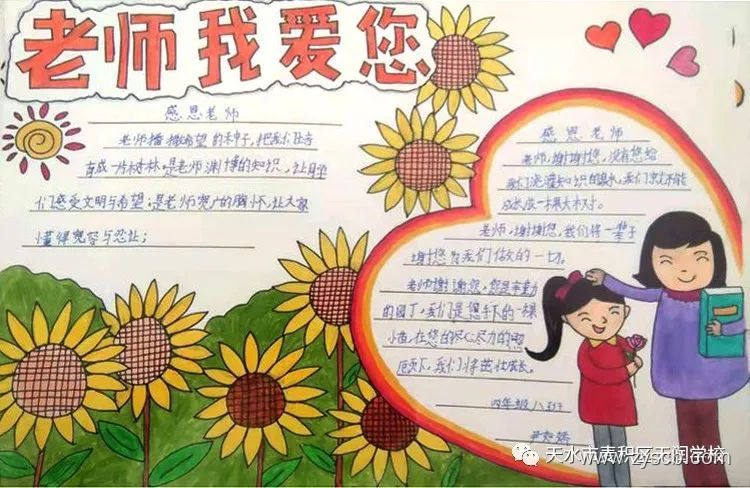 老师我爱您
感恩老师
老师播撒希望的种子,把我们
育成一片树林;是老师渊博的知识,让
们感受文明与希望;是老师宽广的胸怀,让大家
懂得宽容与忍让;
感恩老师
老师,谢谢您,没有您给
我们浇灌知识的泉水,我们就不能
成长成一棵大树。
老师,谢谢您,我们将一辈子
谢您为我们做的一切。
老师谢谢您,您是辛勤
的园丁,我们是您手下的一棵
小苗,在您的尽心尽力的照
顾下,我们将茁壮成长。
四年级八班
天水市麦积区天润学校